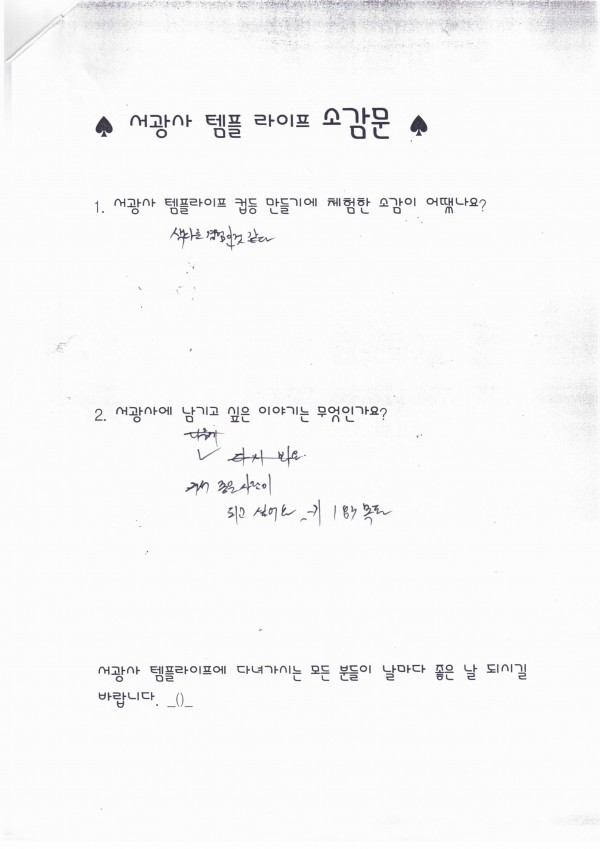 ♠ 서광사 템플 라이프 소감문 ♠
1. 서광사 템플라이프 컵등 만들기에 체험한 소감이 어땠나요?
색다른 경험인것 같다
2. 서광사에 남기고 싶은 이야기는 무엇인가요?
다음에
다시 봐요
좋은 사람이
되고 싶어요 키 183 목표
서광사 템플라이프에 다녀가시는 모든 분들이 날마다 좋은 날 되시길
바랍니다. _()_